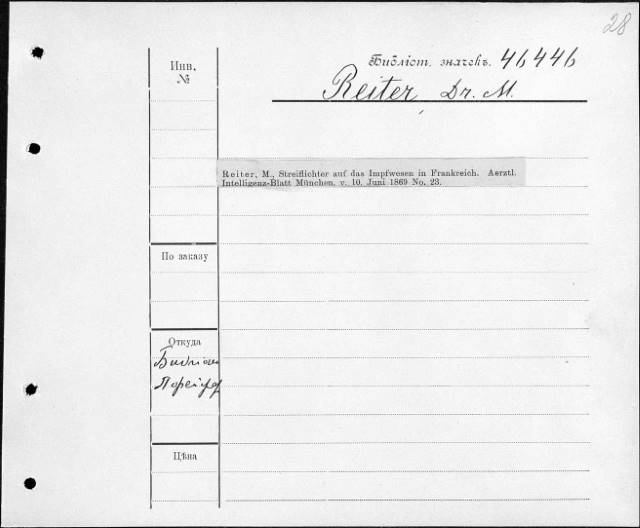 28
Библіот. значекъ. 46446
Инв.
№
Reiter Dr. M.
Reiter, M., Streiflichter auf das Impfwesen in Frankreich. Aerztl.
Intelligenz-Blatt München. v. 10. Juni 1869 No. 23.
По заказу
Откуда
Цѣна